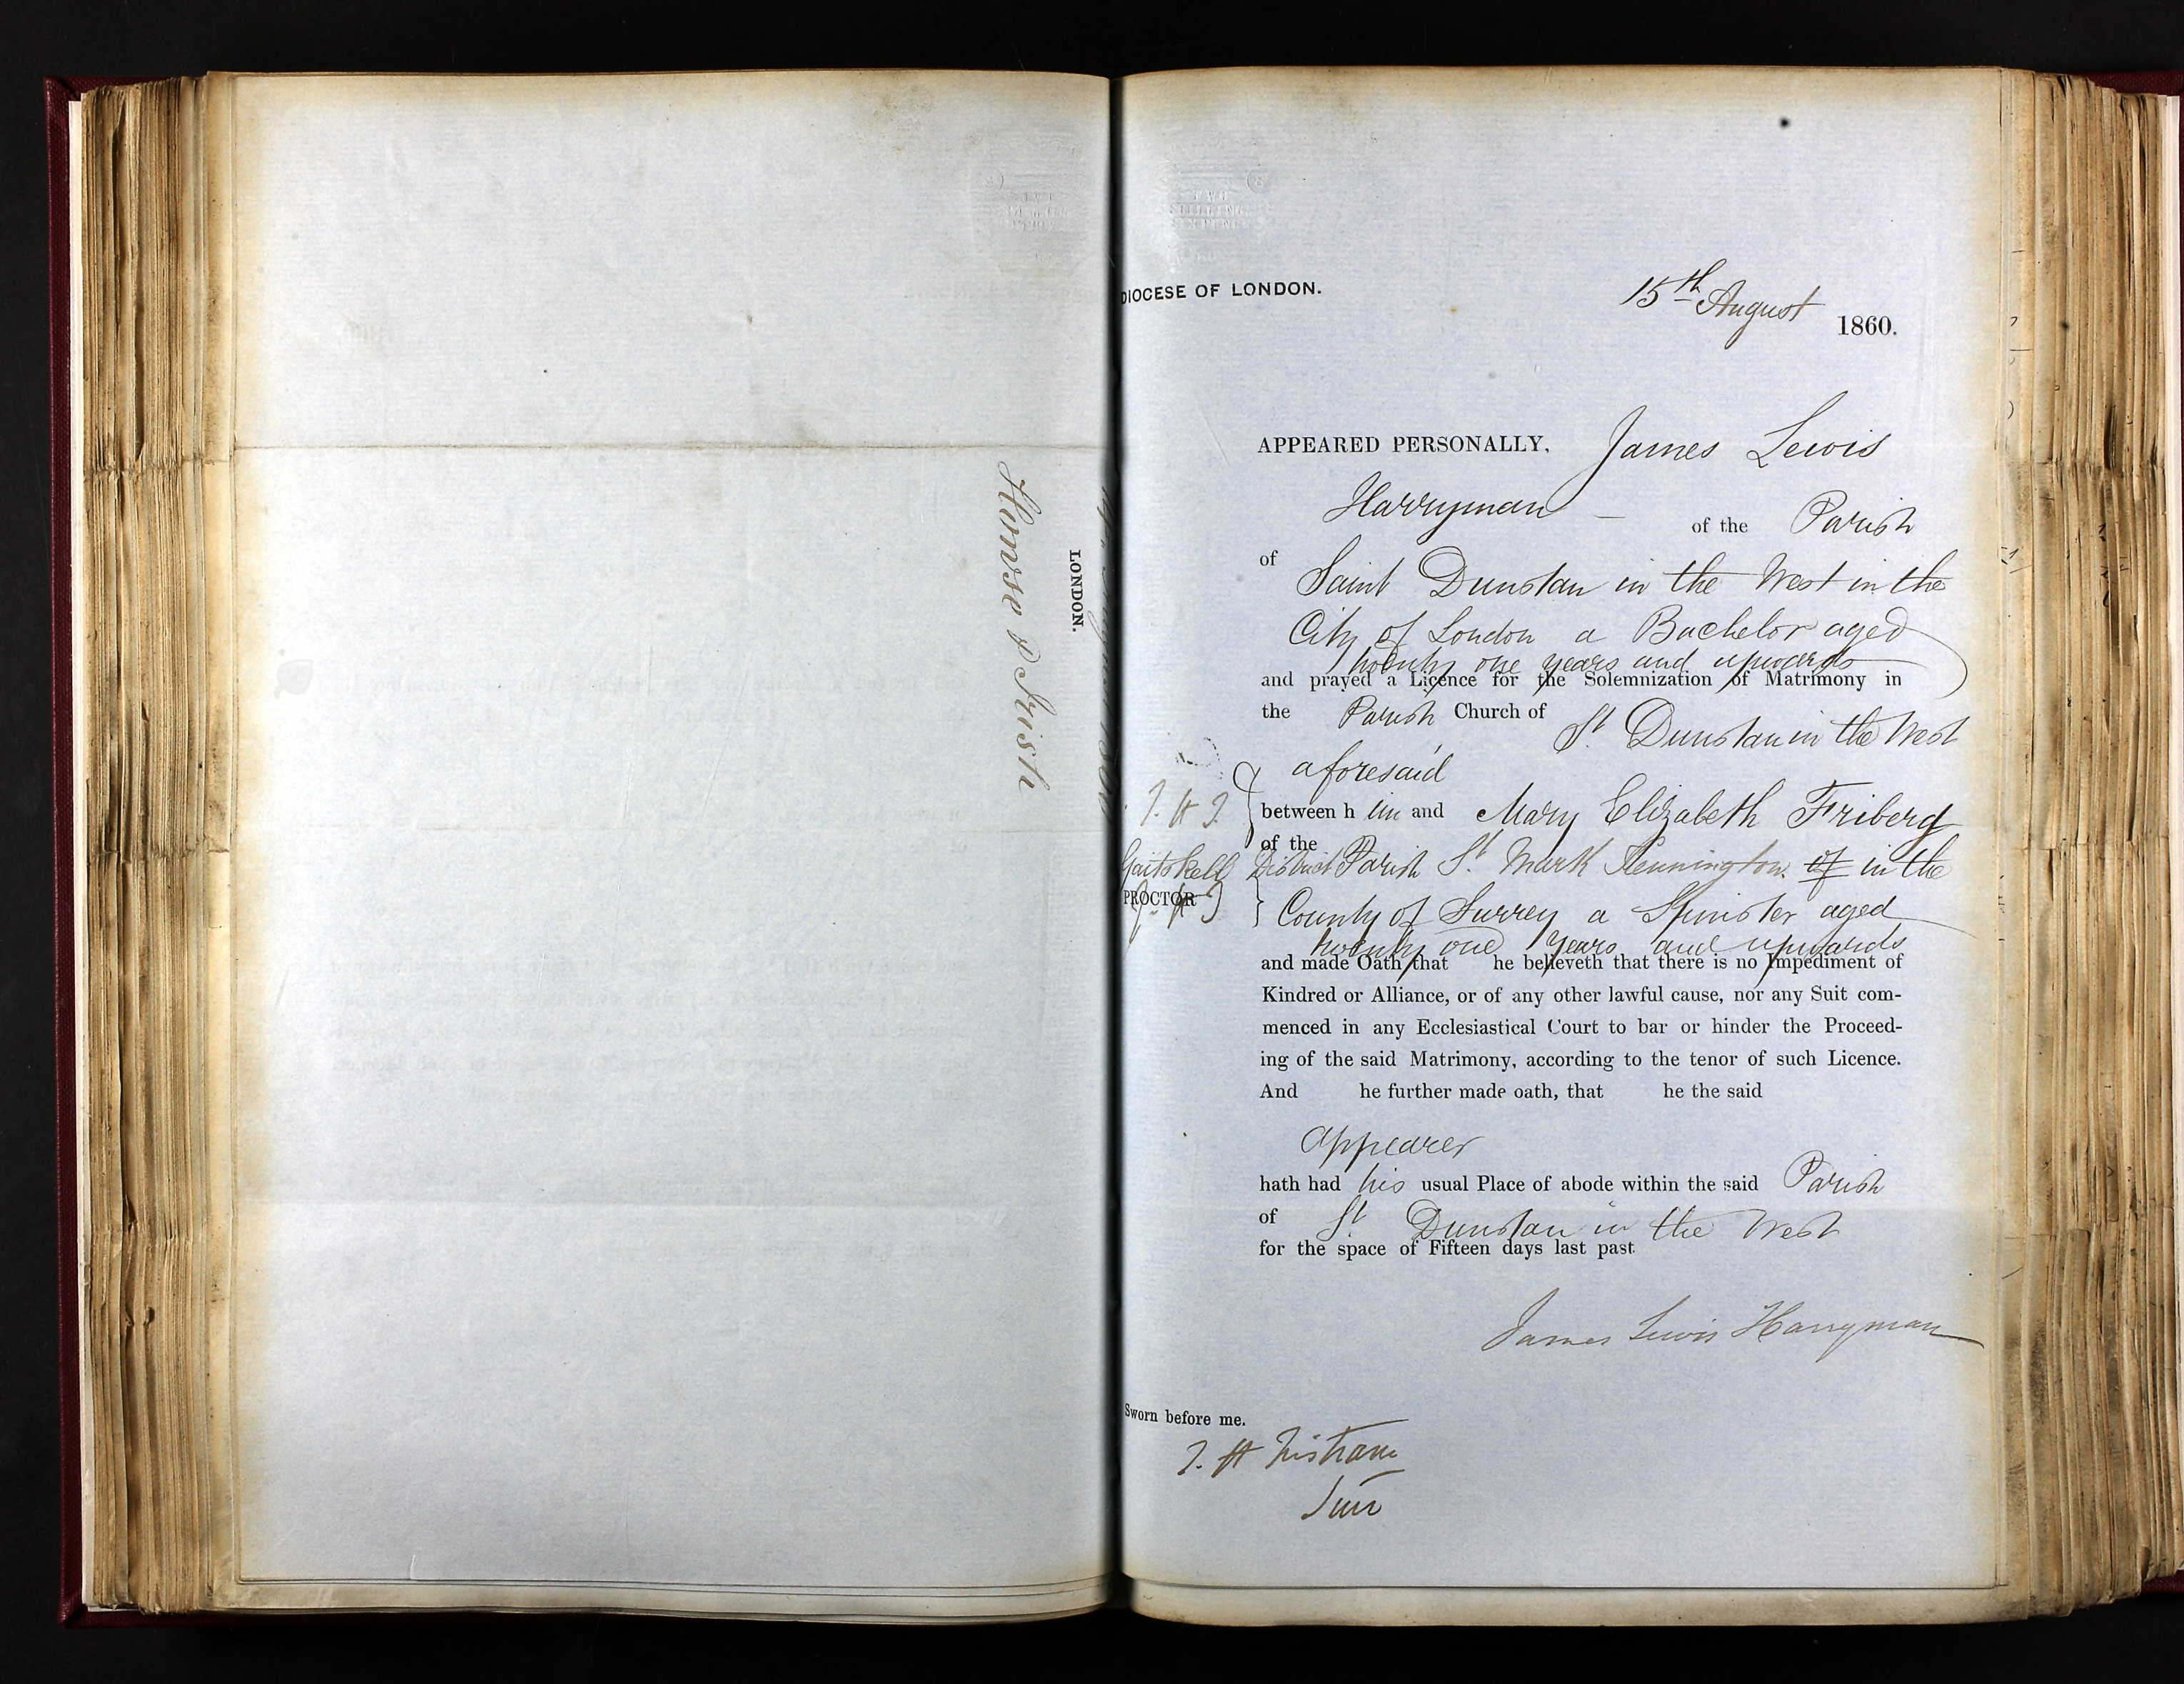 LONDON.
DIOCESE OF LONDON.
15th August
1860.
APPEARED PERSONALLY, James Lewis
Harryman — of the Parish
of Saint Dunstan in the West in the
City of London a Bachelor aged
twenty one years and upwards
and prayed a Licence for the Solemnization of Matrimony in
the Parish Church of St Dunstan in the West
aforesaid
between h im and Mary Elizabeth Friberg
of the
District Parish St Mark Kennington of in the
County of Surrey a Spinster aged
twenty one years and upwards
and made Oath that he believeth that there is no Impediment of
Kindred or Alliance, or of any other lawful cause, nor any Suit com-
menced in any Ecclesiastical Court to bar or hinder the Proceed-
ing of the said Matrimony, according to the tenor of such Licence.
And he further made oath, that he the said
appearer
hath had his usual Place of abode within the said Parish
of St Dunstan in the West
for the space of Fifteen days last past.
Gaitskell
PROCTOR
James Lewis Harryman
Sworn before me.
T. H Tristram
Surr